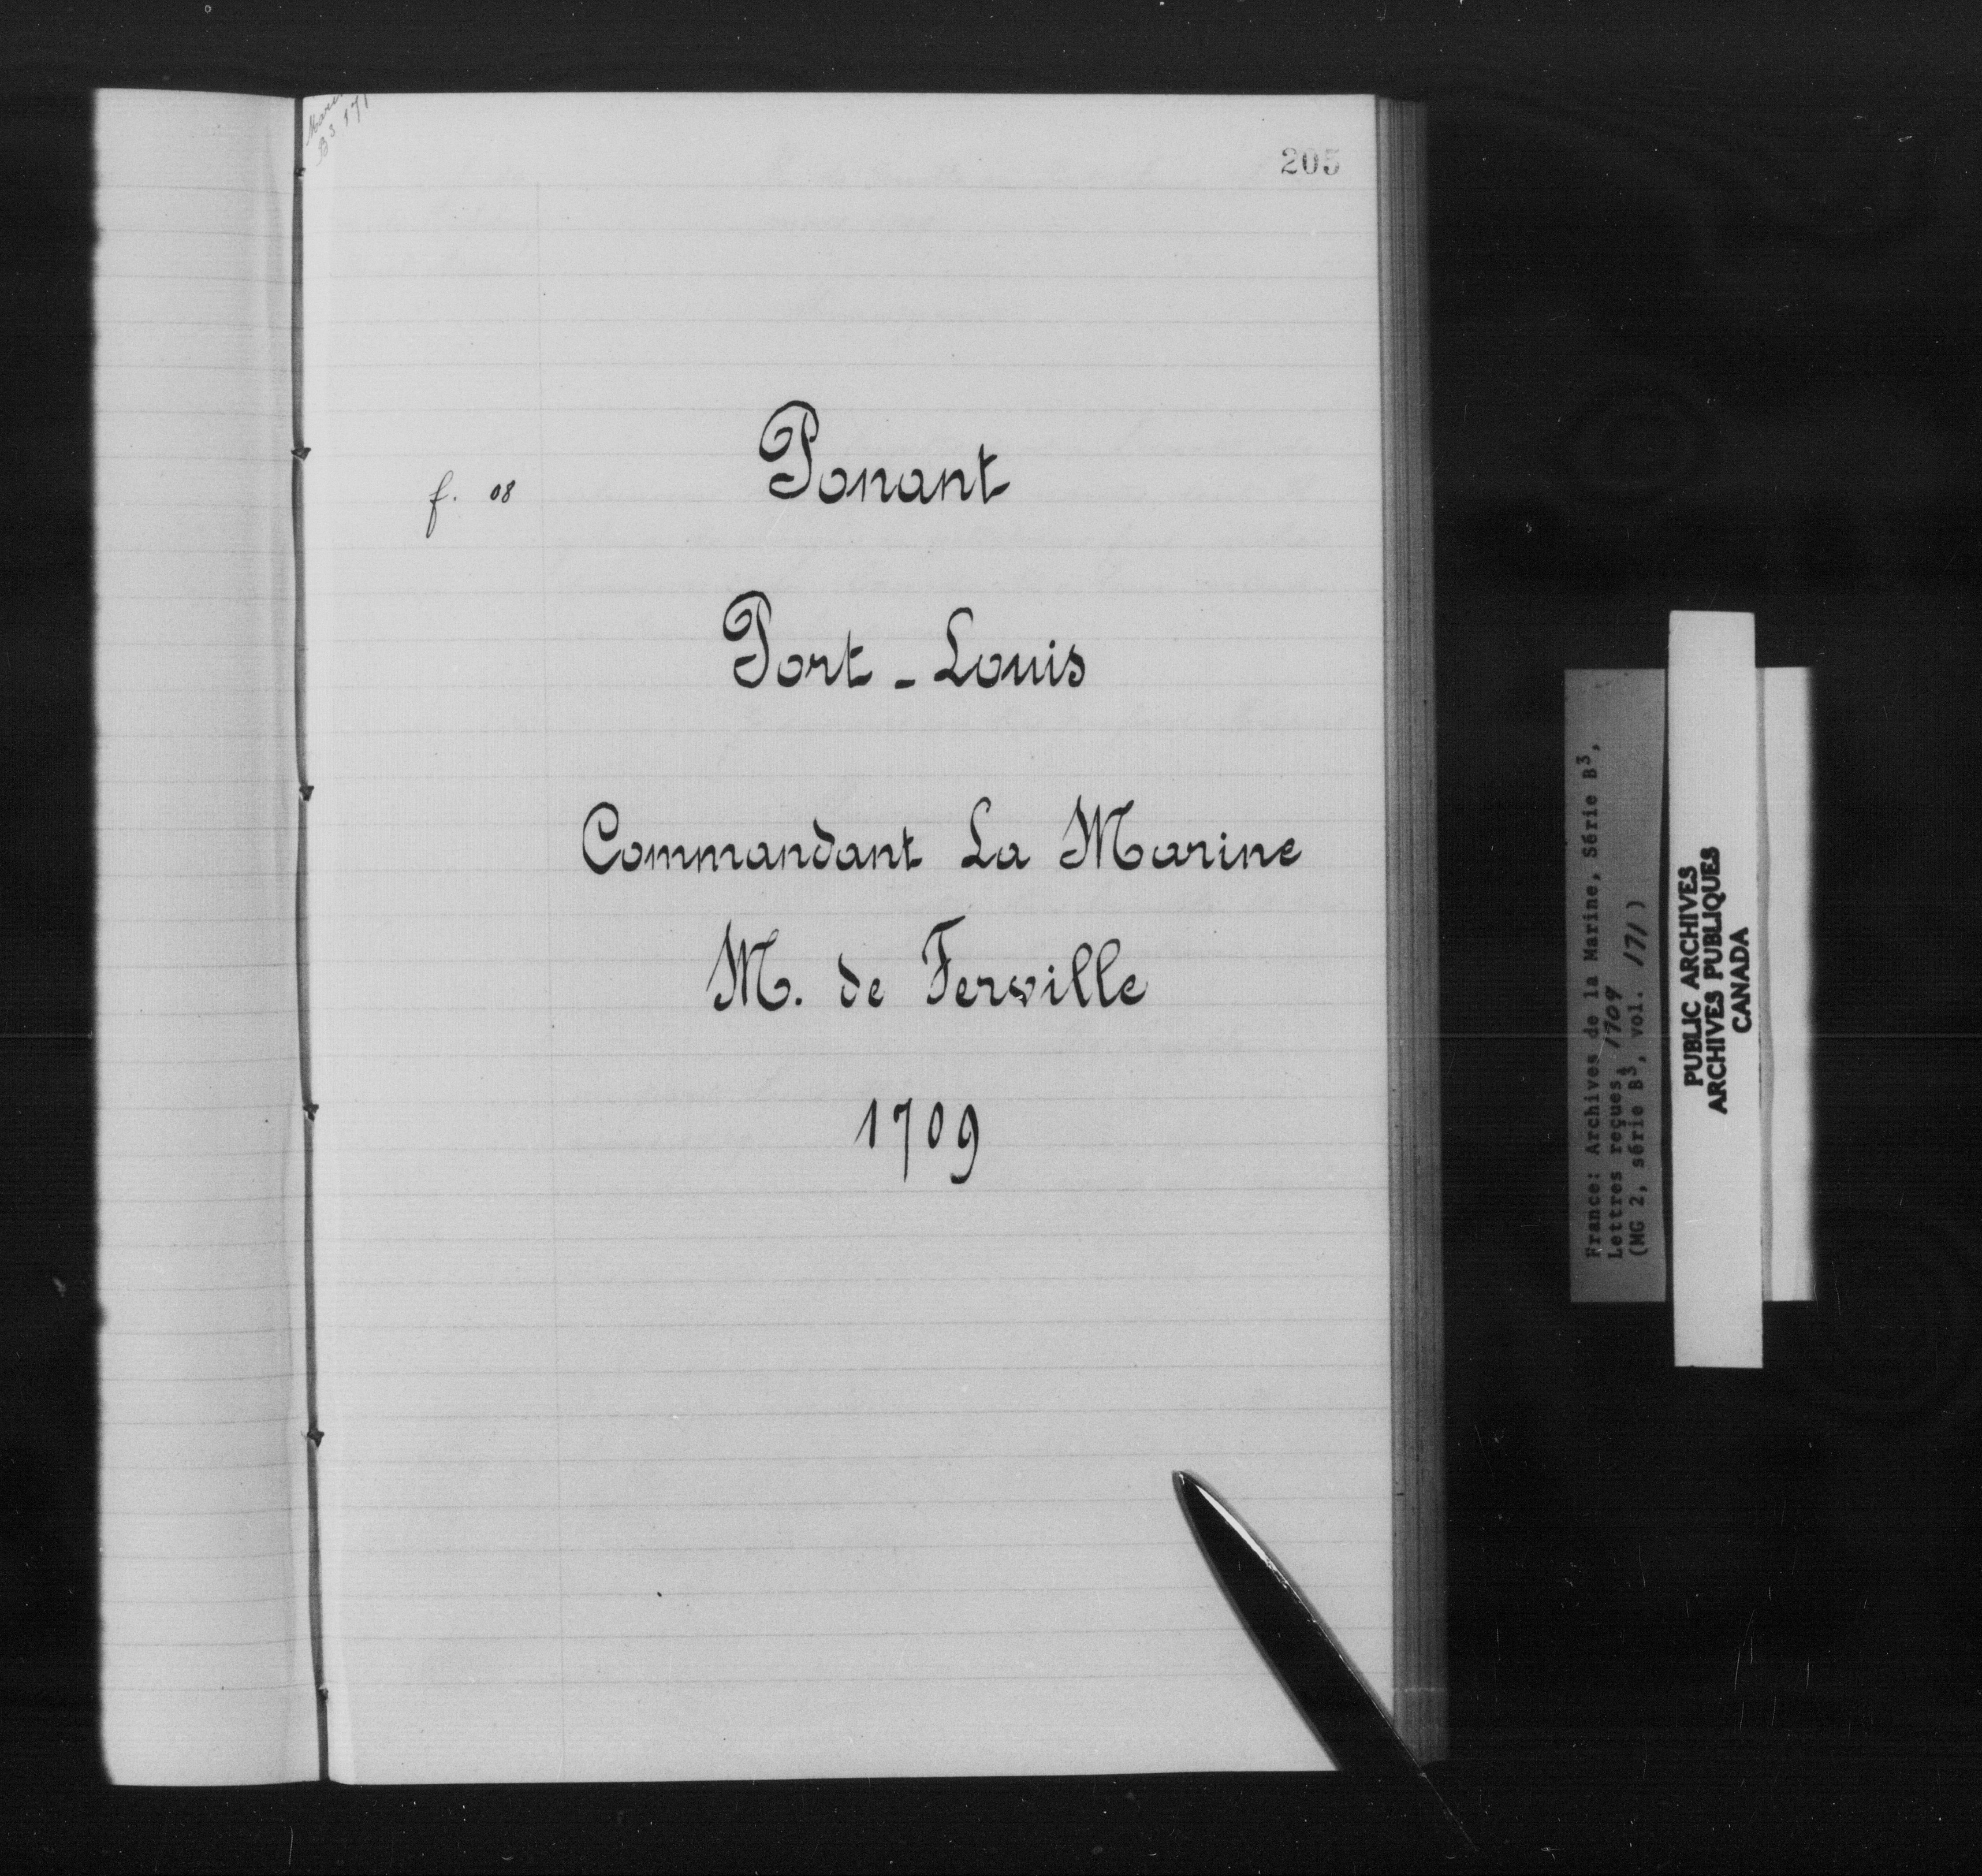 B3 171
205
f. 08
Ponant
Port - Louis
Commandant La Marine
M. de Ferville
1709
France: Archives de la Marine, Série B3,
Lettres reçues, 1709
(MG 2, série B3, vol. 171)
PUBLIC ARCHIVES
ARCHIVES PUBLIQUES
CANADA